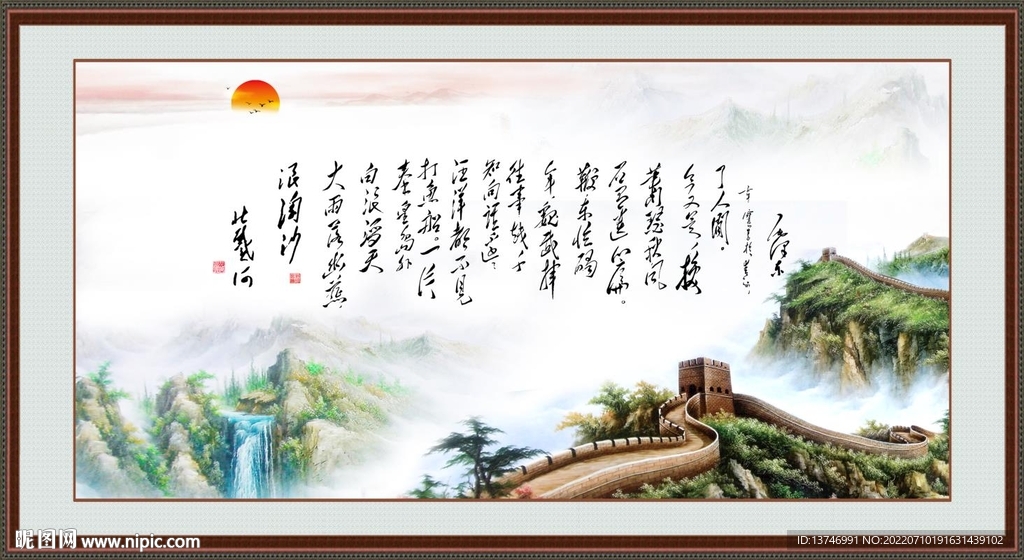 北戴河
浪淘沙
大雨落幽燕
白浪滔天
秦皇島外
打魚船。一片
汪洋都不見
知向誰邊
往事越千
年,魏武揮
鞭東臨碣
石有遺篇。
蕭瑟秋風
今又是,換
了人間。
毛澤东
昵图网 www.nipic.com
ID:13746991 NO:20220710191631439102